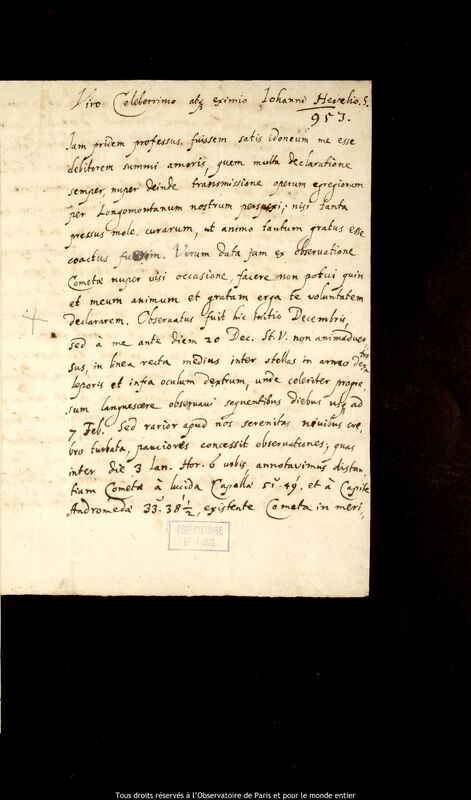 Viro Celeberrimo atq; eximio Iohanni Hevelio. S.
953.
Iam pridem professus fuissem satis idoneum me esse
debitorem summi amoris, quem multa declaratione
semper, nuper deinde transmissione operum egregiorum
per Longomontanum nostrum perspexi; nisi tanta
pressus mole curarum, ut animo tantum gratus esse
coactus fuerim. Verum data jam ex observatione
Cometæ nuper visi occasione, facere non potui quin
et meum animum et gratam erga te voluntatem
declararem. Observatus fuit hic tertio Decembris,
sed à me ante diem 20 Dec. St. V. non animadver
sus, in linea recta medius inter stellas in armo dex
tro
leporis et infra oculum dextrum, unde celeriter progres
sum languescere observavi sequentibus diebus usq; ad
7 Feb. Sed rarior apud nos serenitas, nivibus cre,
bro turbata, pauciores concessit observationes; quas
inter die 3 Ian. Hor. 6 urbis, annotavimus distan,
tiam Cometæ à lucida Capellæ 51. 49. et à Capite
Andromedæ 33. 38 1/2, existente Cometa in meri,
OBSERVATOIRE
DE PARIS
Tous droits réservés à l'Observatoire de Paris et pour le monde entier